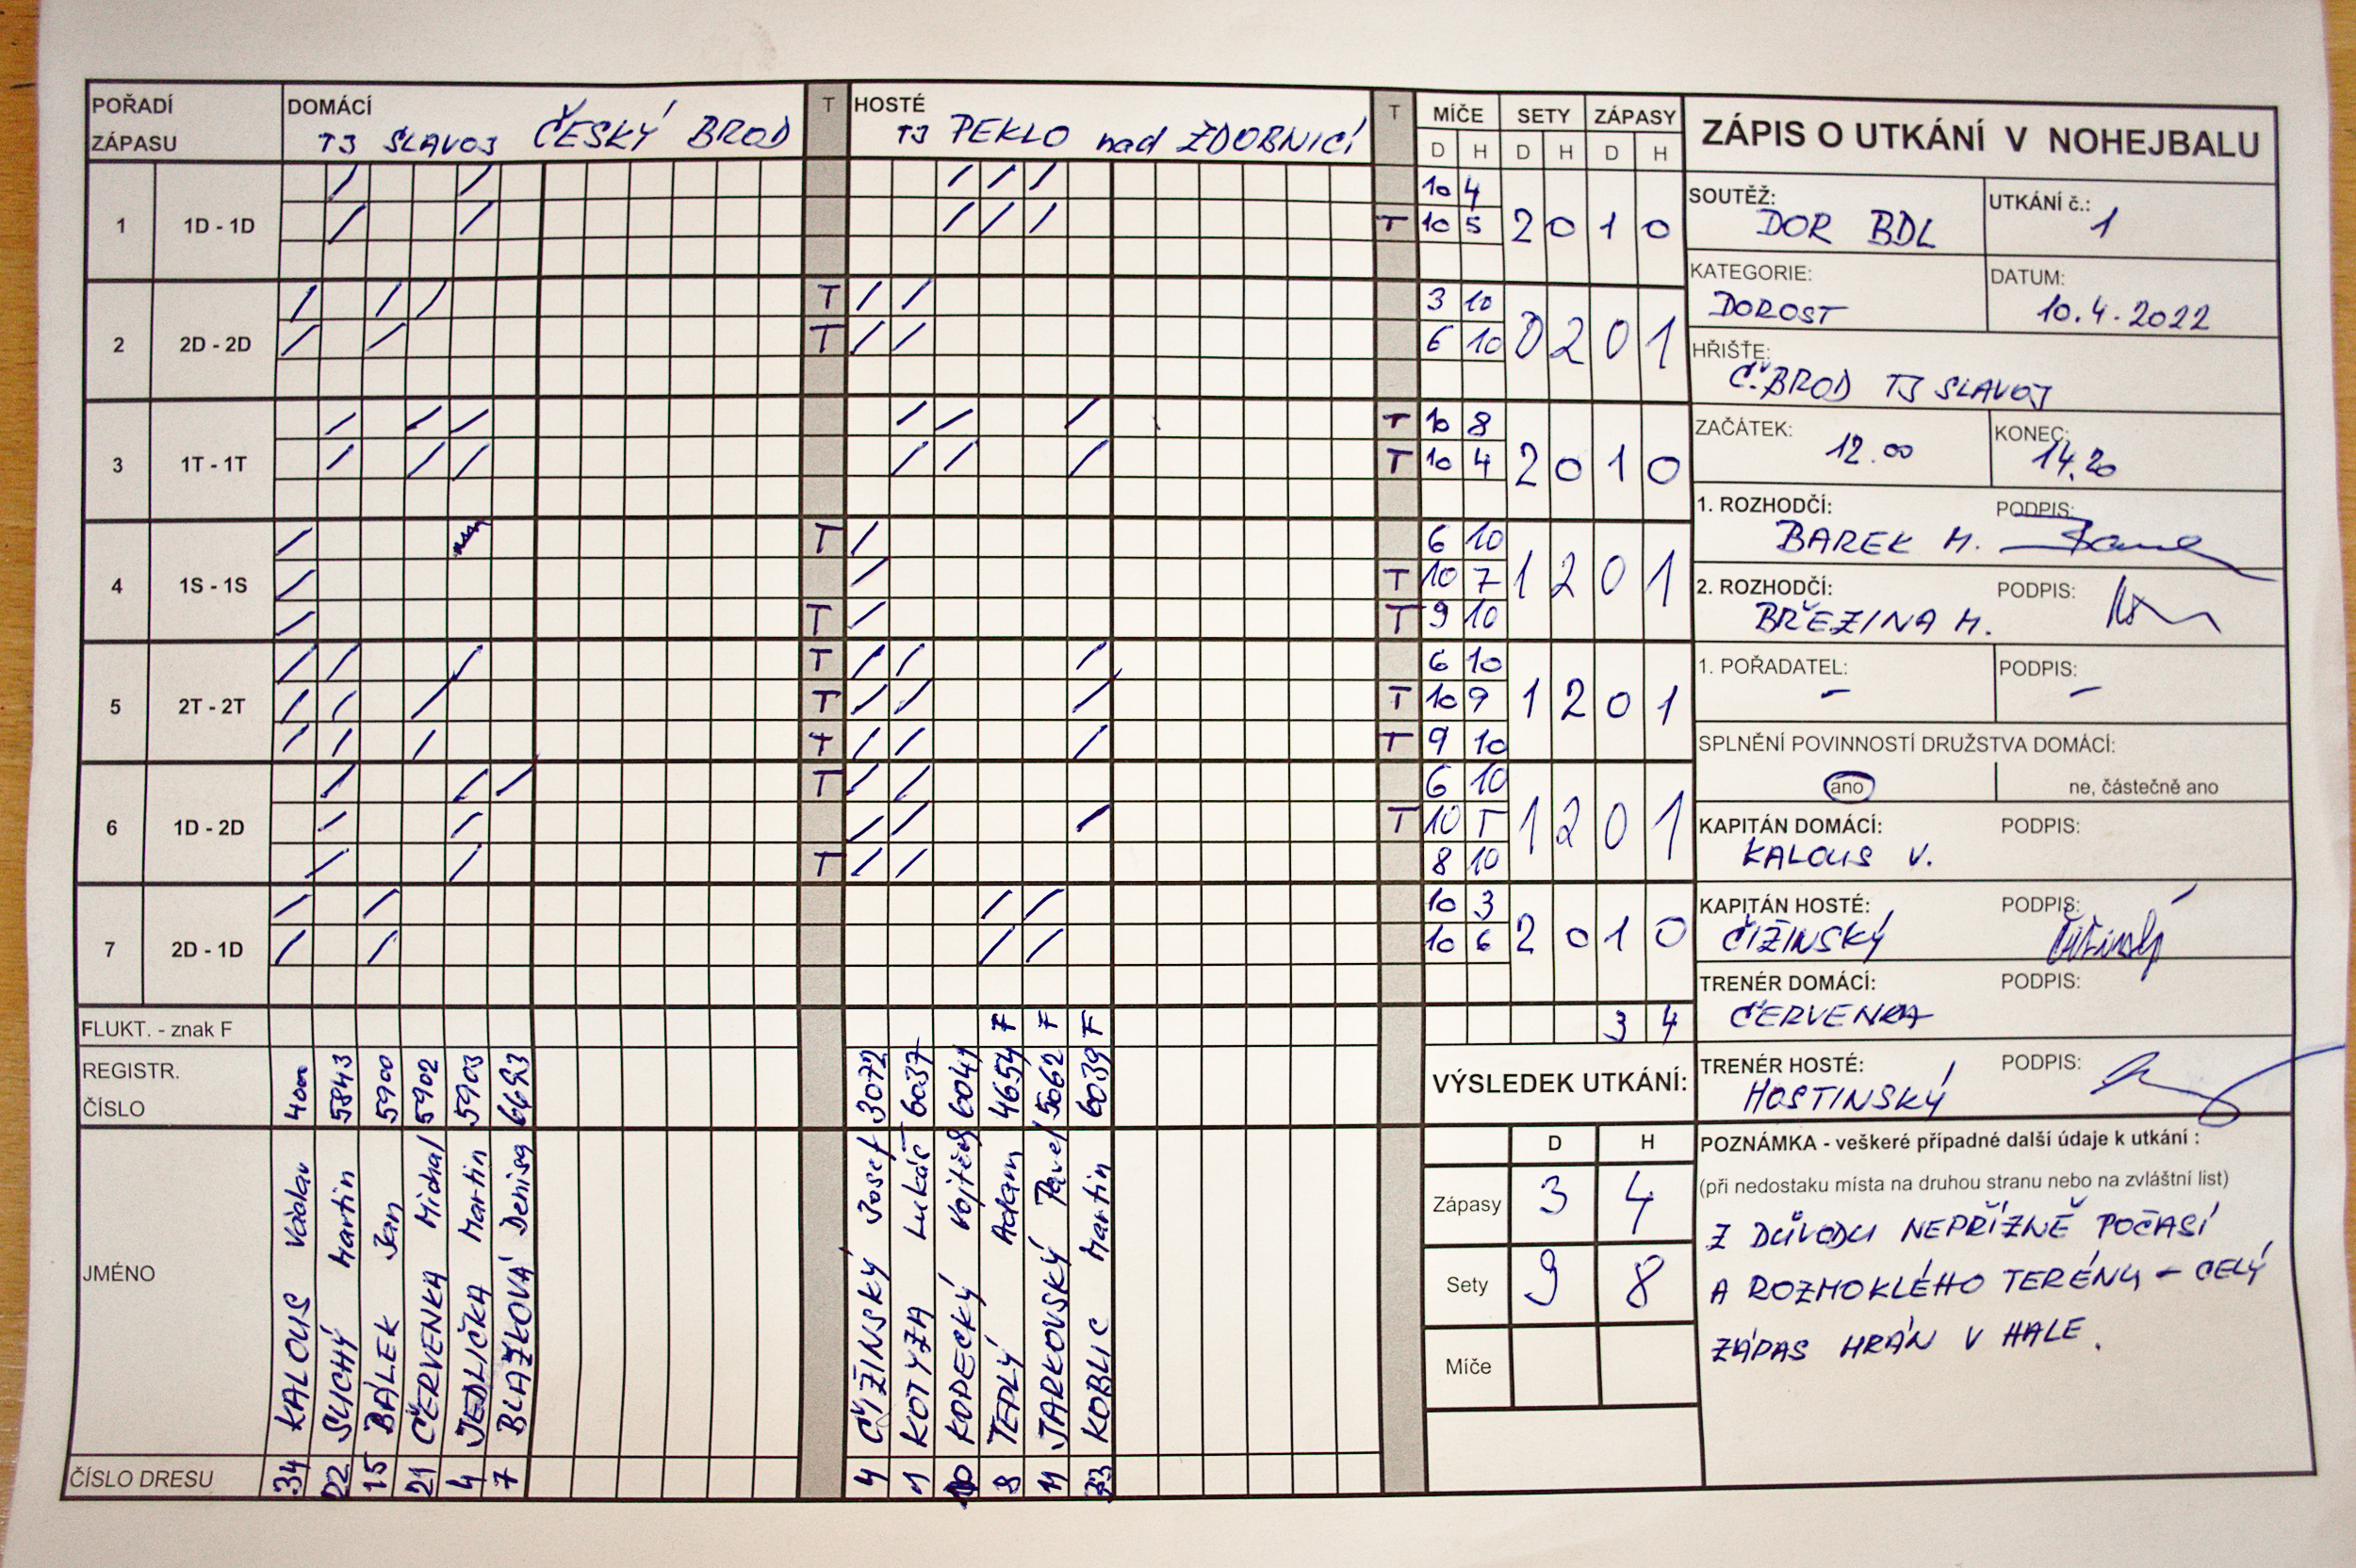 POŘADÍ ZÁPASU
DOMÁCÍ
TJ SLAVOJ ČESKÝ BROD
T
HOSTÉ
TJ PEKLO nad ZDOBNICÍ
T
MÍČE SETY ZÁPASY
D H D H D H
1 1D - 1D
10 4
T 10 5
2 0 1 0
2 2D - 2D
T 3 10
T 6 10
0 2 0 1
3 1T - 1T
T 10 8
T 10 4
2 0 1 0
4 1S - 1S
T 6 10
T 10 7
T T 9 10
1 2 0 1
5 2T - 2T
T 6 10
T T 10 9
T T 9 10
1 2 0 1
6 1D - 2D
T 6 10
T 10 5
T 8 10
1 2 0 1
7 2D - 1D
10 3
10 6
2 0 1 0
3 4
FLUKT. - znak F
F F F
REGISTR. ČÍSLO
4000 5843 5900 5902 5903 6693
3072 6037 6041 4654 5062 6039
JMÉNO
KALOUS Václav
SUCHÝ Martin
BÁLEK Jan
ČERVENKA Michal
JEDLIČKA Martin
BLAŽKOVÁ Denisa
ČIŽINSKÝ Josef
KOTYZA Lukáš
KOPECKÝ Vojtěch
TEPLÝ Adam
JARKOVSKÝ Pavel
KOBLIC Martin
ČÍSLO DRESU
34 22 15 21 4 7
4 1 10 8 11 33
VÝSLEDEK UTKÁNÍ:
D H
Zápasy 3 4
Sety 9 8
Míče
ZÁPIS O UTKÁNÍ V NOHEJBALU
SOUTĚŽ: DOR BDL
UTKÁNÍ č.: 1
KATEGORIE: DOROST
DATUM: 10.4.2022
HŘIŠTĚ: Č.BROD TJ SLAVOJ
ZAČÁTEK: 12.00
KONEC: 14.20
1. ROZHODČÍ: BAREK M.
PODPIS:
2. ROZHODČÍ: BŘEZINA M.
PODPIS:
1. POŘADATEL: –
PODPIS: –
SPLNĚNÍ POVINNOSTÍ DRUŽSTVA DOMÁCÍ:
ano
ne, částečně ano
KAPITÁN DOMÁCÍ: KALOUS V.
PODPIS:
KAPITÁN HOSTÉ: ČIŽINSKÝ
PODPIS: Čižinský
TRENÉR DOMÁCÍ: ČERVENKA
PODPIS:
TRENÉR HOSTÉ: HOSTINSKÝ
PODPIS:
POZNÁMKA - veškeré případné další údaje k utkání :
(při nedostaku místa na druhou stranu nebo na zvláštní list)
Z DŮVODU NEPŘÍZNĚ POČASÍ
A ROZMOKLÉHO TERÉNU – CELÝ
ZÁPAS HRÁN V HALE.